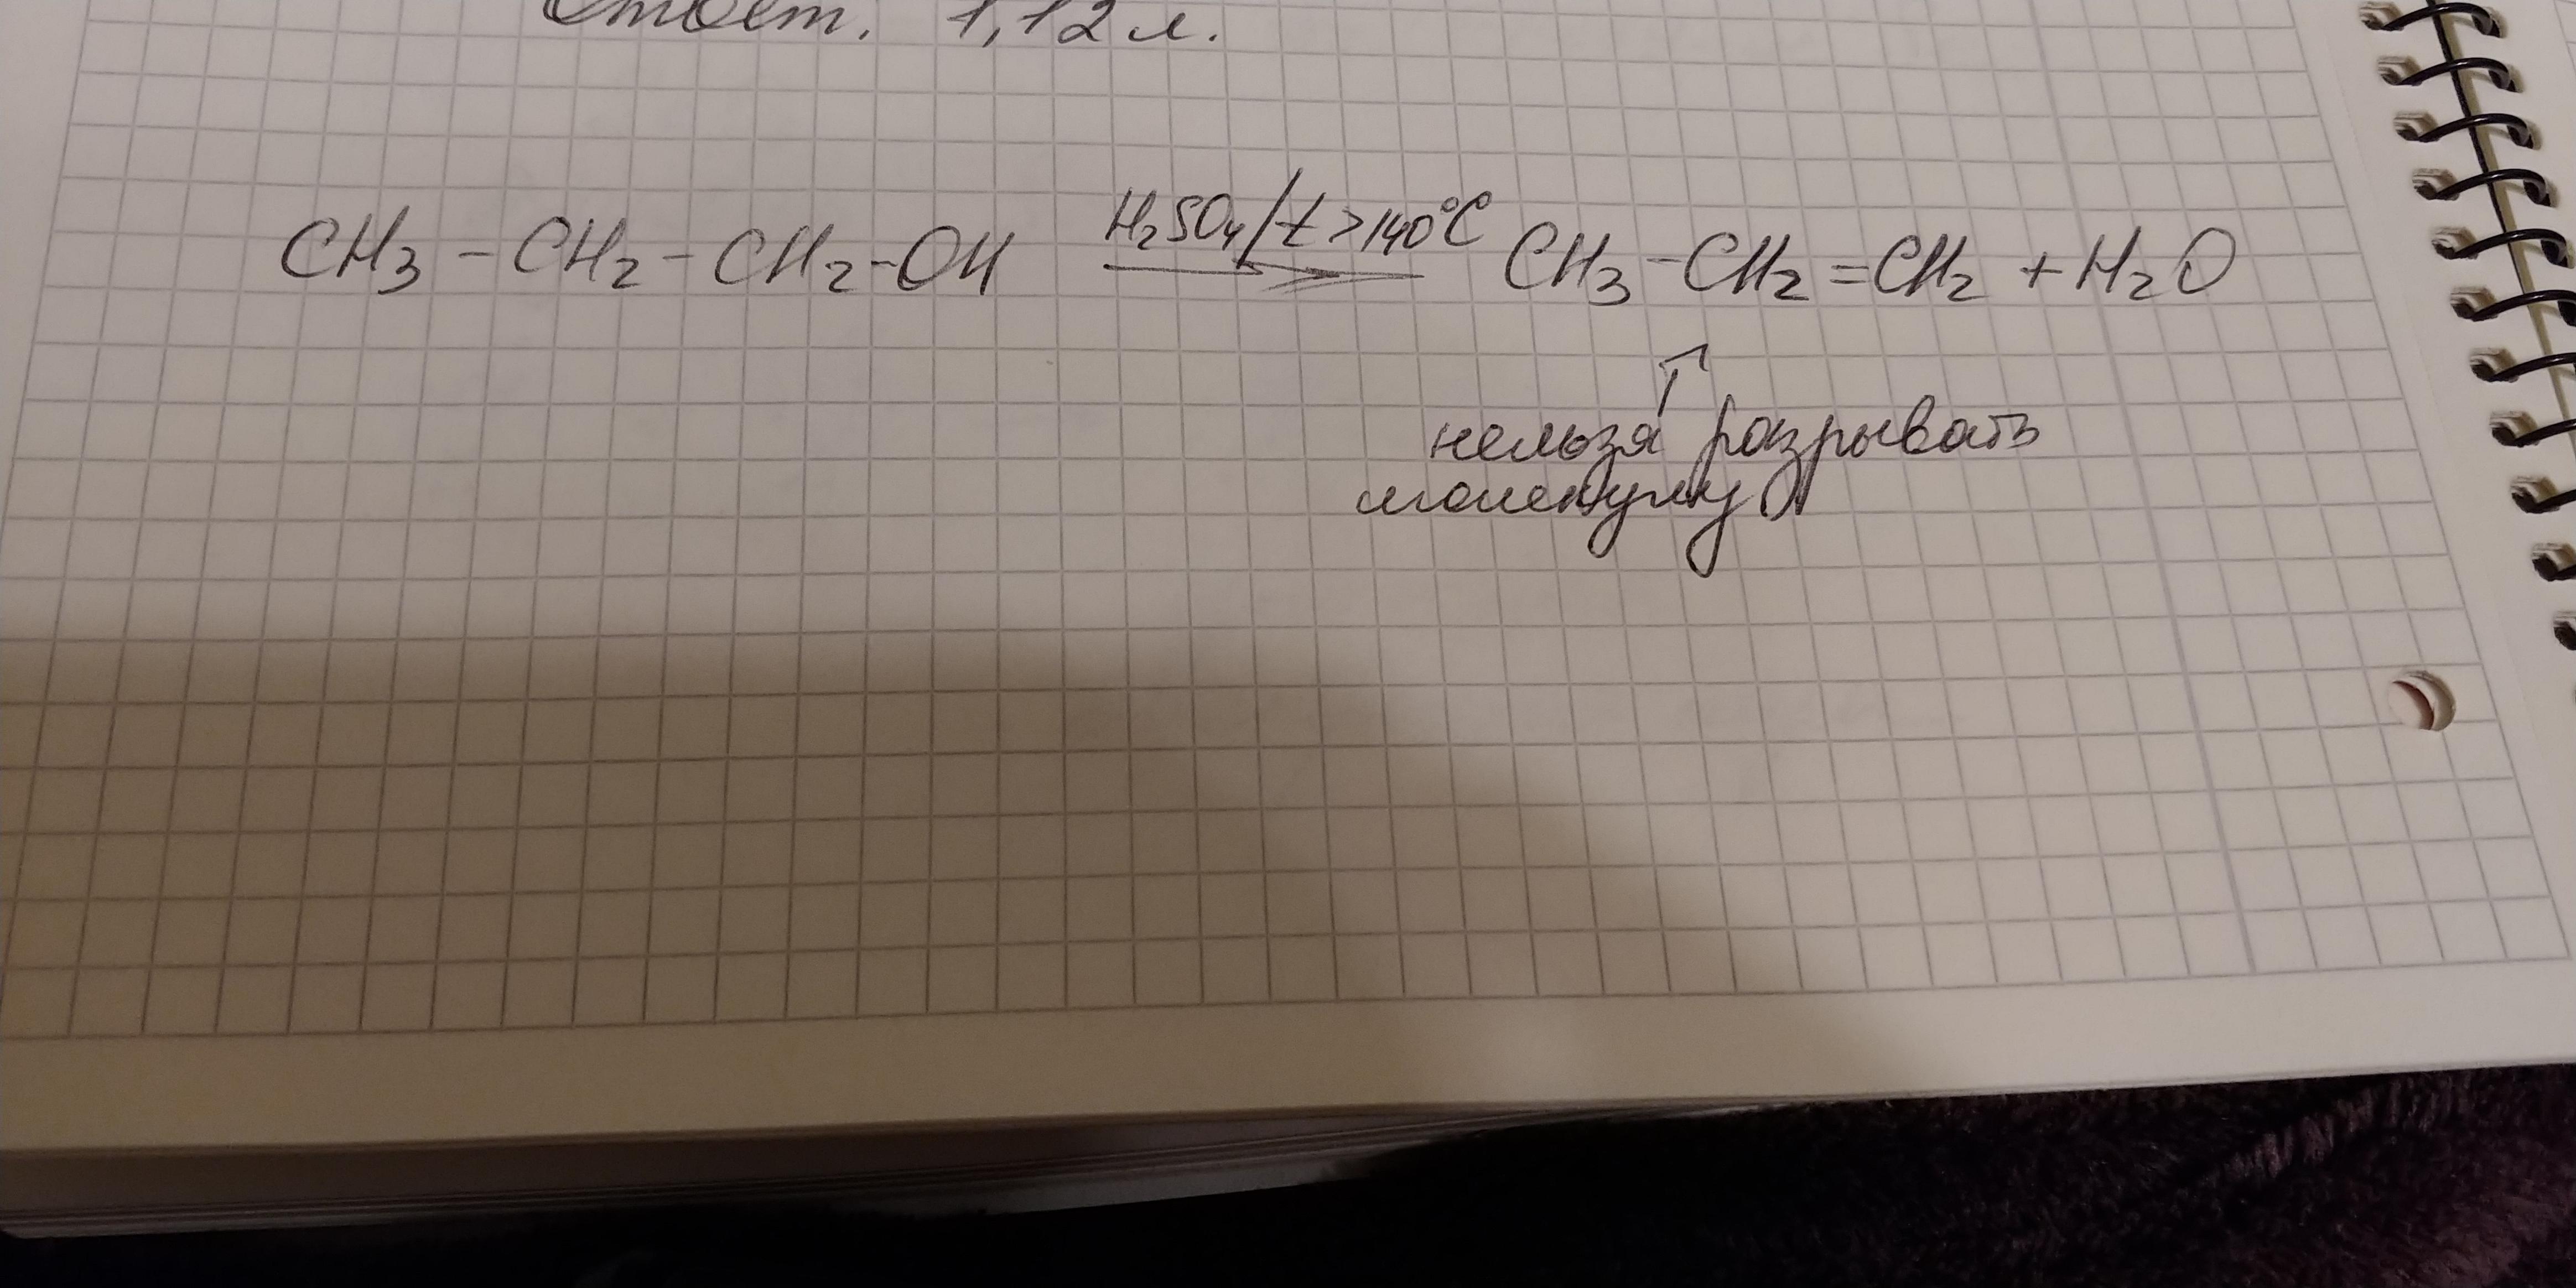 Ответ. 1,12 л.
CH₃ - CH₂ - CH₂ - OH H₂SO₄/t >140°C → CH₃ - CH₂ = CH₂ + H₂O
↑
нельзя разрывать
молекулу